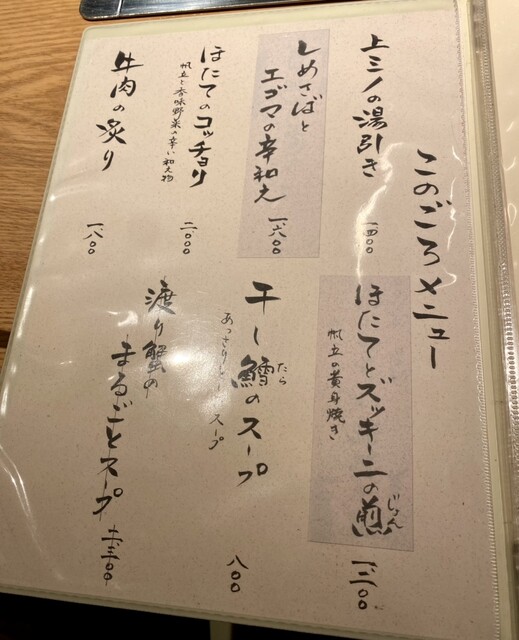 このごろメニュー
上ミノの湯引き
一四〇〇
しめさばと
エゴマの辛和え
一六〇〇
ほたてのコッチョリ
帆立と香味野菜の辛い和え物
二〇〇〇
牛肉の炙り
一八〇〇
ほたてとズッキーニの煎
じょん
帆立の黄身焼き
干し鱈のスープ
たら
スープ
八〇〇
渡り蟹の
まるごとスープ